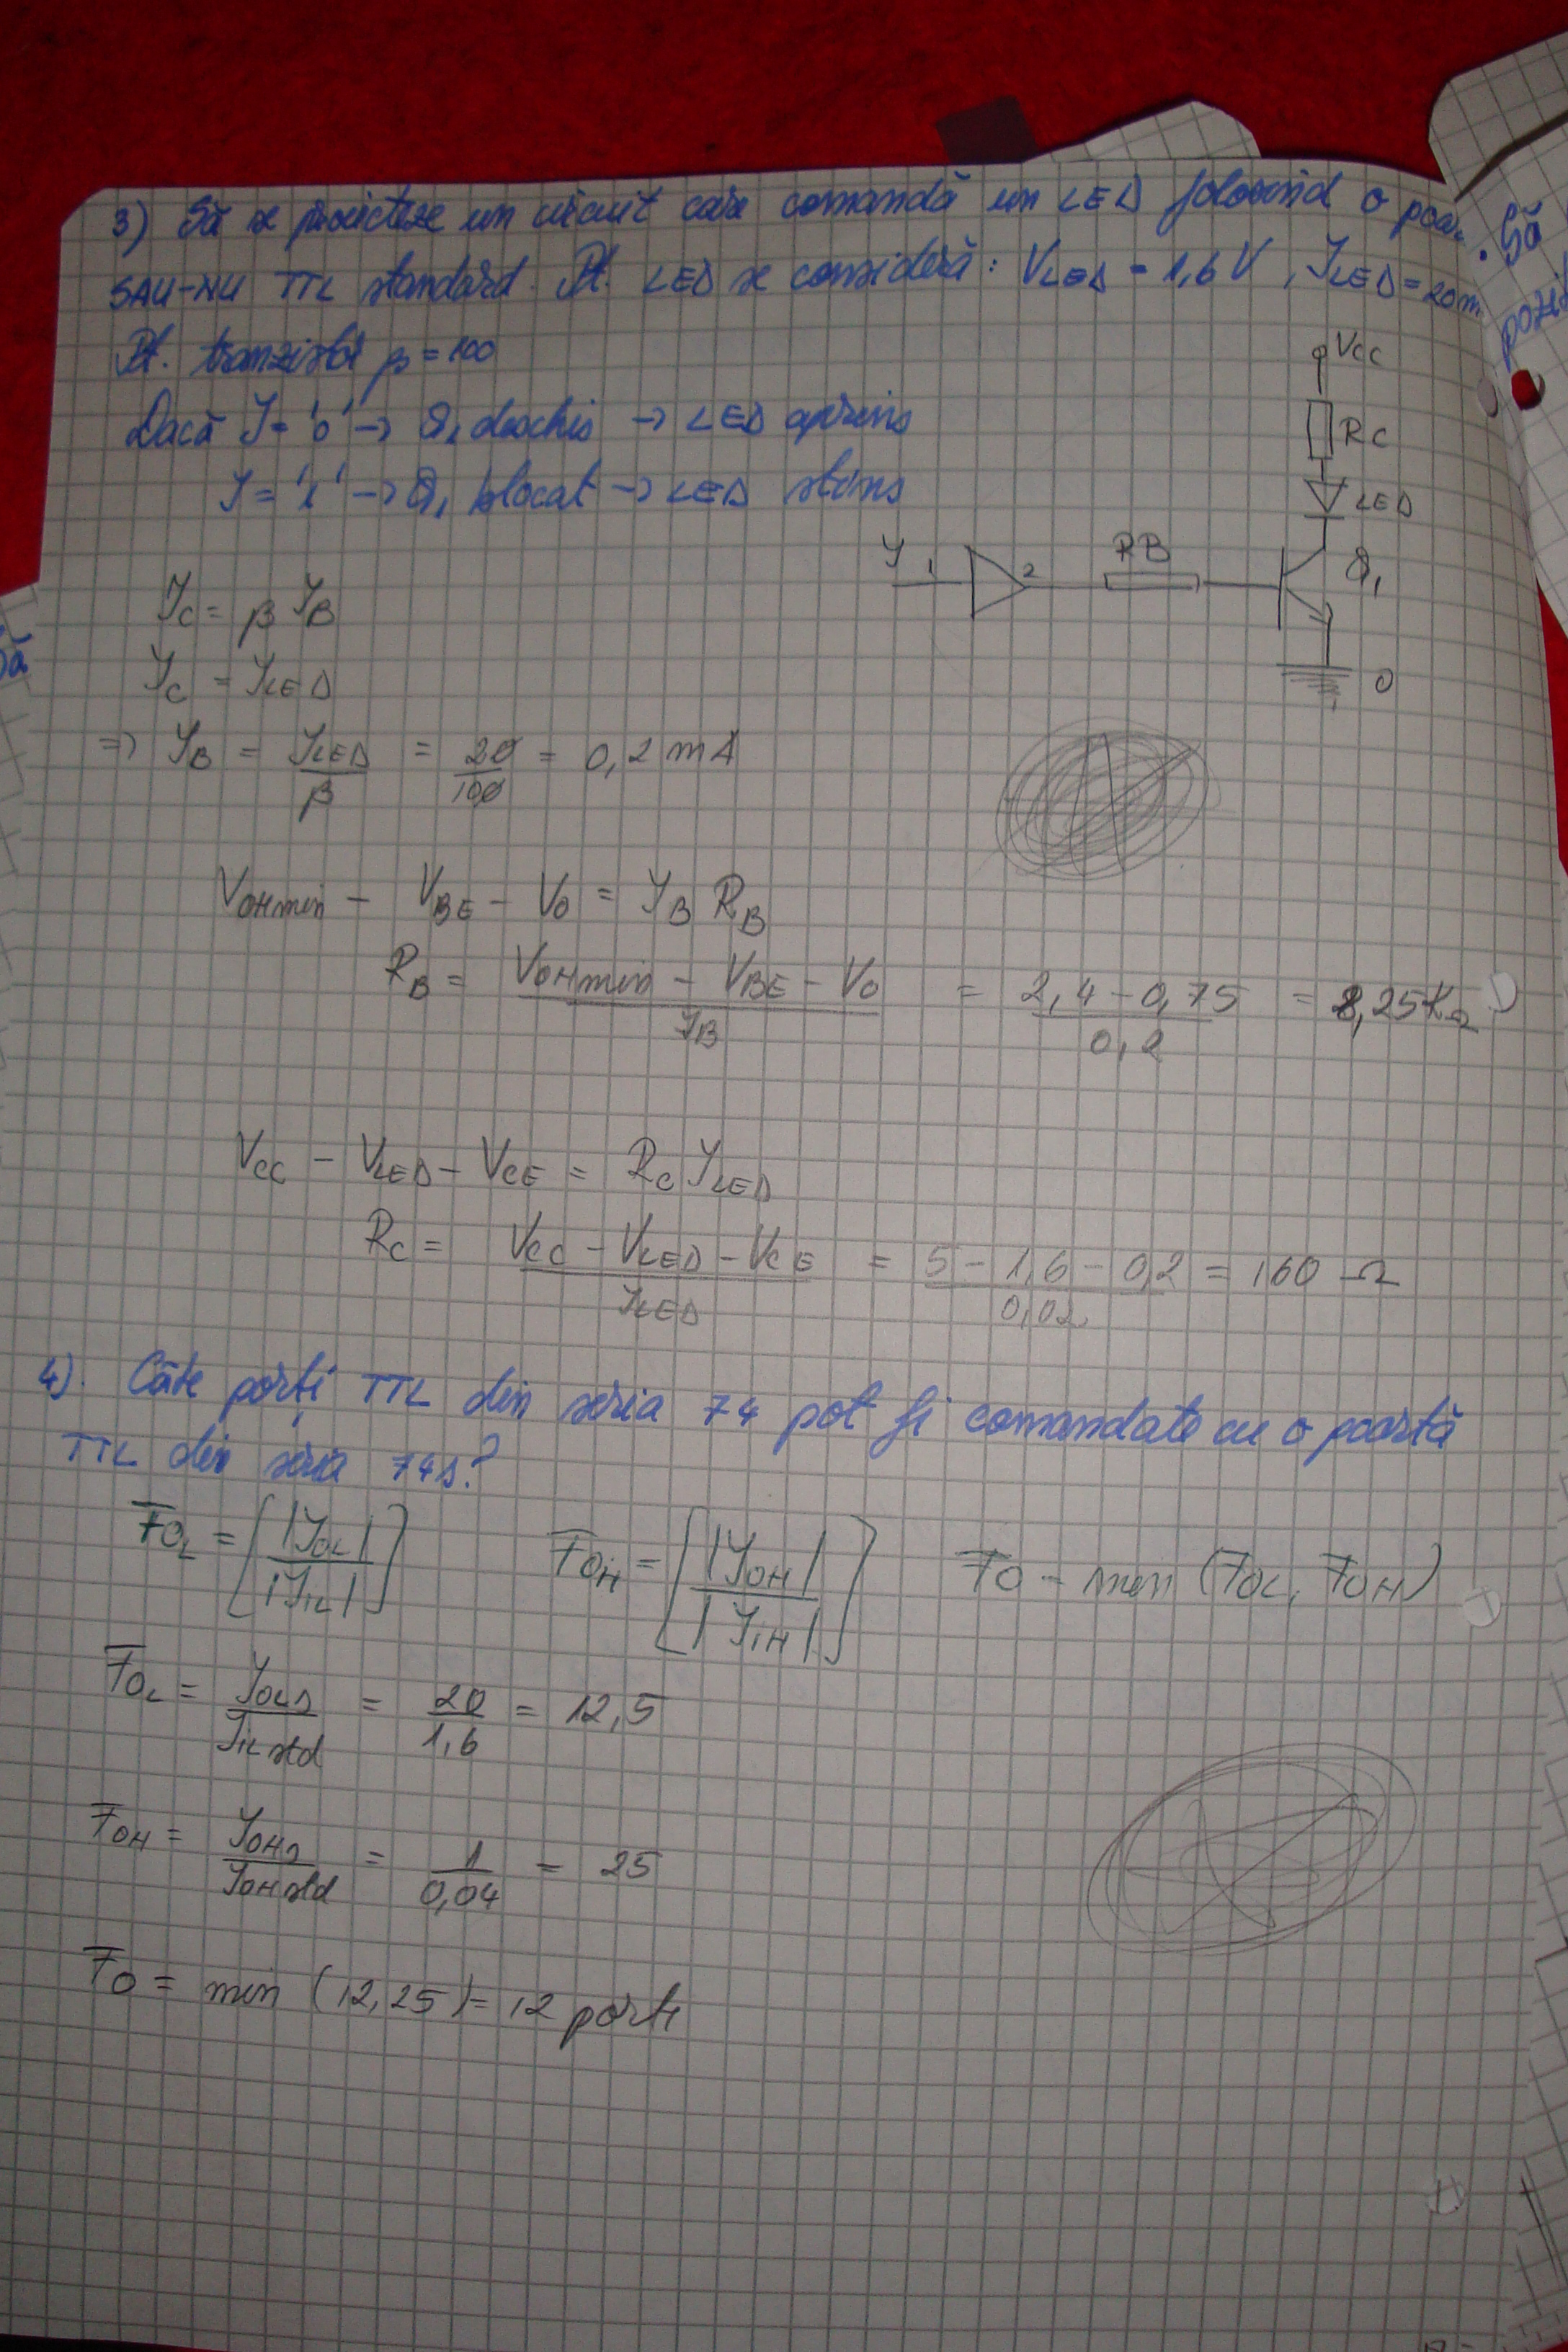 3) Să se proiecteze un circuit care comandă un LED folosind o poar
SAU-NU TTL standard. Pt. LED se consideră: VLED = 1,6 V, ILED = 20 m
Pt. tranzistor β = 100
Dacă I = '0' → Q1 deschis → LED aprins
I = '1' → Q1 blocat → LED stins
VCC
RC
LED
I 1 2 RB Q1
0
IC = β IB
IC = ILED
⇒ IB = ILED/β = 20/100 = 0,2 mA
VOHmin - VBE - V0 = IB RB
RB = (VOHmin - VBE - V0)/IB = (2,4 - 0,75)/0,2 = 8,25 KΩ
VCC - VLED - VCE = RC ILED
RC = (VCC - VLED - VCE)/ILED = (5 - 1,6 - 0,2)/0,02 = 160 Ω
4). Câte porți TTL din seria 74 pot fi comandate cu o poartă
TTL din seria 74S?
FOL = [|IOL|/|IIL|] FOH = [|IOH|/|IIH|] FO - min (FOL, FOH)
FOL = IOLS/IIL std = 20/1,6 = 12,5
FOH = IOHS/IOH std = 1/0,04 = 25
FO = min (12,25) = 12 porti
Să